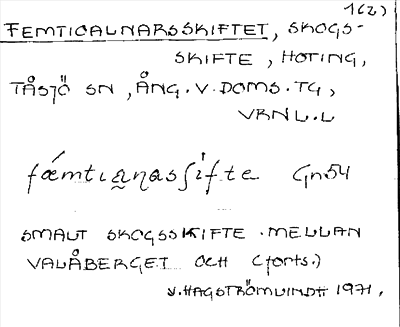 1(2)
FEMTIOALNARSSKIFTET, SKOGS-
SKIFTE, HOTING,
TÅSJÖ SN, ÅNG. V. DOMS. TG,
VRNL.L
fǽmtıa̲n̲asʃífte Gn54
SMALT SKOGSSKIFTE MELLAN
VALÅBERGET OCH (forts.)
V. HAGSTRÖM LINDH 1971.